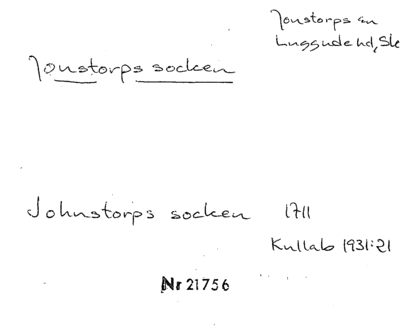 Jonstorps sn
Luggude hd, Sk
Jonstorps socken
Johnstorps socken 1711
Kullab 1931:21
Nr 21756